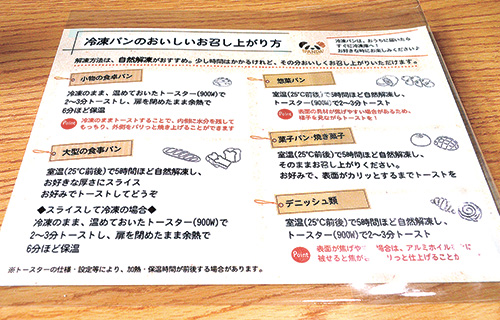 冷凍パンのおいしいお召し上がり方
冷凍パンは、おうちに届いたら
すぐに冷凍庫へ!
お好きな時にお楽しみください♪
解凍方法は、自然解凍がおすすめ。少し時間はかかるけれど、その分おいしくお召し上がりいただけます。
小物の食卓パン
冷凍のまま、温めておいたトースター(900W)で
2〜3分トーストし、扉を閉めたまま余熱で
6分ほど保温
Point 冷凍のままトーストすることで、内側に水分を残して
もっちり、外側をパリっと焼き上げることができます
大型の食事パン
室温(25℃前後)で5時間ほど自然解凍し、
お好きな厚さにスライス
お好みでトーストしてどうぞ
◆スライスして冷凍の場合◆
冷凍のまま、温めておいたトースター(900W)で
2〜3分トーストし、扉を閉めたまま余熱で
6分ほど保温
惣菜パン
室温(25℃前後)で5時間ほど自然解凍し、
トースター(900W)で2〜3分トースト
Point 表面の具材が焦げやすい場合があるため、
様子を見ながらトーストを!
菓子パン・焼き菓子
室温(25℃前後)で5時間ほど自然解凍し、
そのままお召し上がりください。
お好みで、表面がカリッとするまでトーストを
デニッシュ類
室温(25℃前後)で5時間ほど自然解凍し、
トースター(900W)で2〜3分トースト
Point 表面が焦げや 場合は、アルミホイル
被せると焦が リっと仕上げること
※トースターの仕様・設定等により、加熱・保温時間が前後する場合があります。